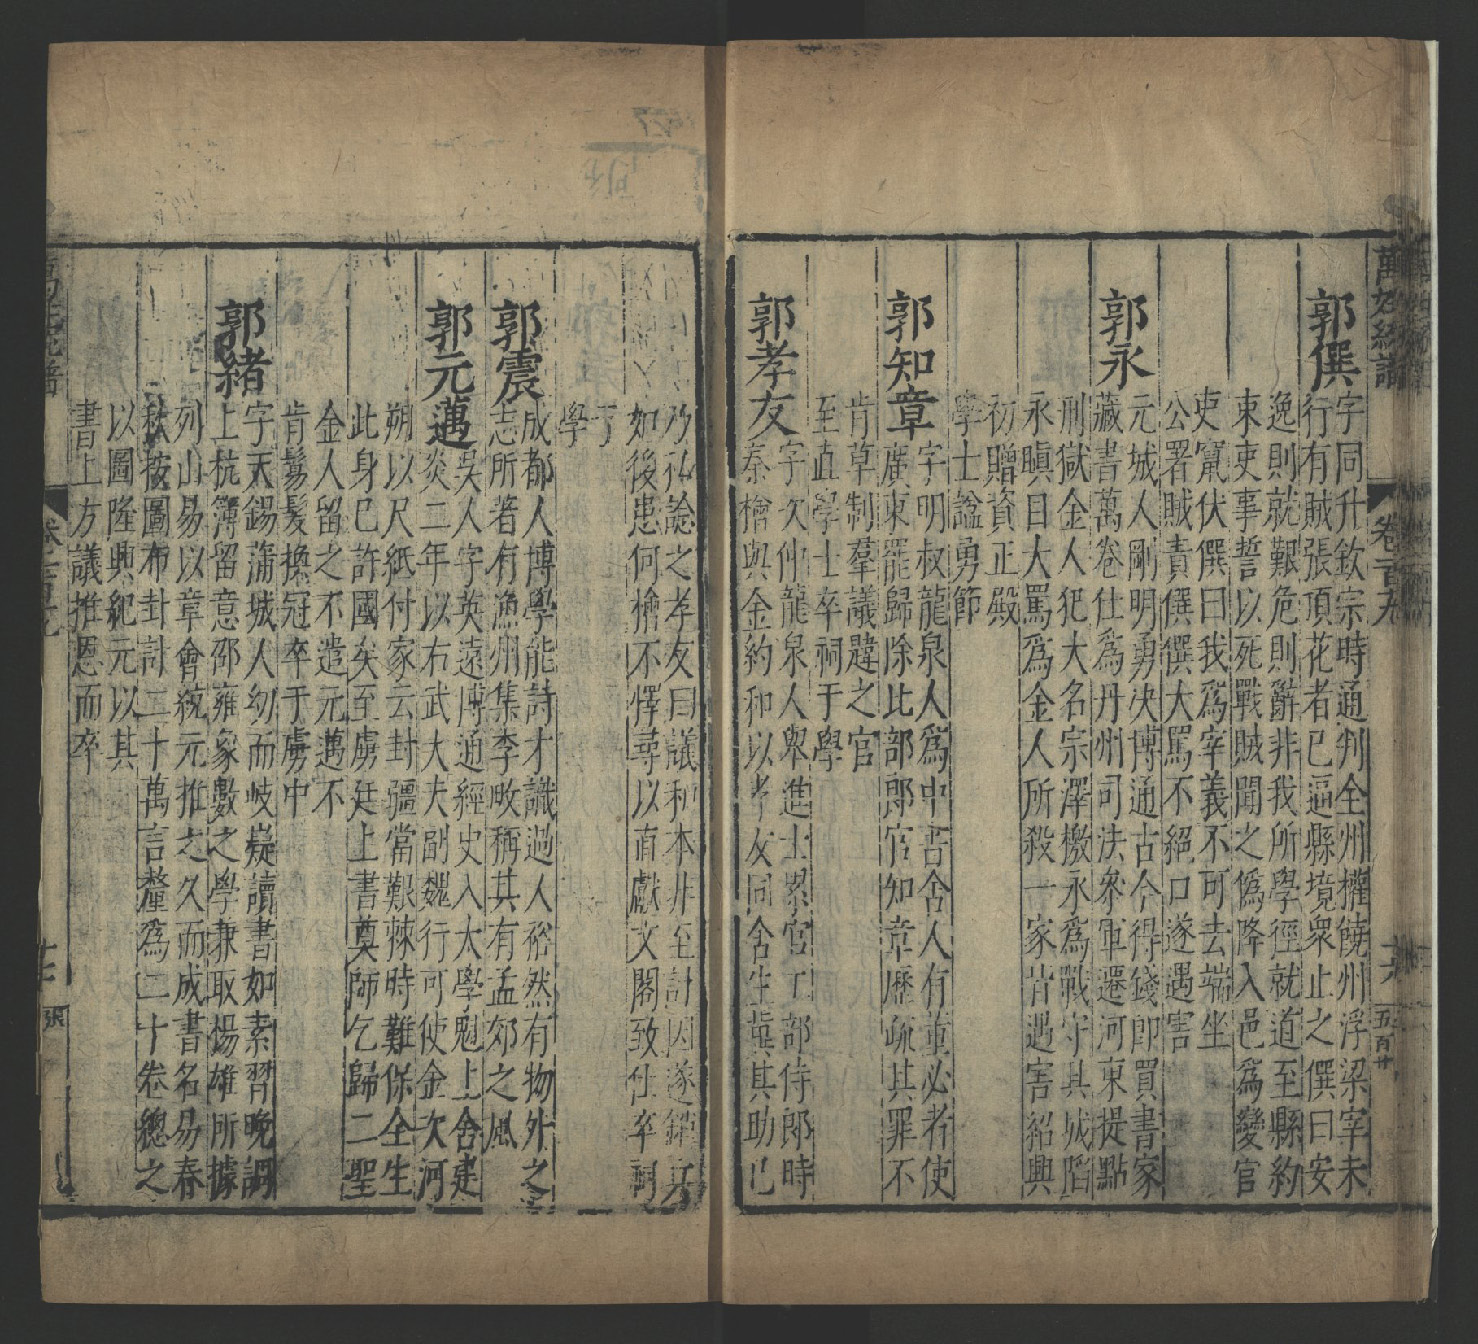 萬姓統譜
卷一百九
十六
五百廿
郭僎
字同升欽宗時通判全州擢饒州浮梁宰未
行有賊張頂花者已逼縣境衆止之僎曰安
逸則就艱危則辭非我所學徑就道至縣約
束吏事誓以死戰賊聞之僞降入邑爲變官
吏竄伏僎曰我爲宰義不可去端坐
公署賊責僎僎大罵不絕口遂遇害
郭永
元城人剛明勇决博通古今得錢即買書家
藏書萬卷仕爲丹州司法叅軍遷河東提點
刑獄金人犯大名宗澤檄永爲戰守具城陷
永瞋目大罵爲金人所殺一家皆遇害紹興
初贈資正殿
學士謚勇節
郭知章
字明叔龍泉人爲中書舍人有董必者使
廣東罷歸除比部郎官知章歷疏其罪不
肯草制羣議韙之官
至直學士卒祠于學
郭孝友
字次仲龍泉人舉進士累官工部侍郎時
秦檜與金約和以孝友同舍生冀其助己
乃私諗之孝友曰議和本非至計因遂鎮兵
如後患何檜不懌尋以直獻文閣致仕卒祠
于
學
郭震
成都人博學能詩才識過人裕然有物外之
志所著有漁州集李畋稱其有孟郊之風
郭元邁
吳人字英遠博通經史入太學魁上舍建
炎二年以右武大夫副魏行可使金次河
朔以尺紙付家云封疆當艱棘時難保全生
此身已許國矣至虜廷上書奠師乞歸二聖
金人留之不遣元邁不
肯髡髮換冠卒于虜中
郭緒
字天錫蒲城人幼而岐嶷讀書如素習晚調
上杭簿留意邵雍家數之學兼取楊雄所據
列山易以章會統元推之久而成書名易春
秋按圖布卦計二十萬言釐爲二十卷總之
以圖隆興紀元以其
書上方議推恩而卒
卷一百九
十七